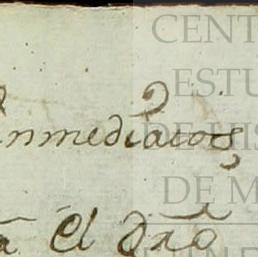 CENT
ESTU
DE HIS
DE M
nmediatos
a El dro